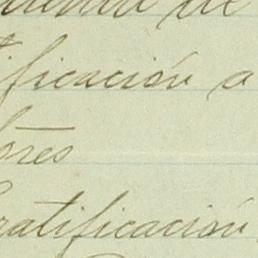 de
ificación a
ores
ratificación